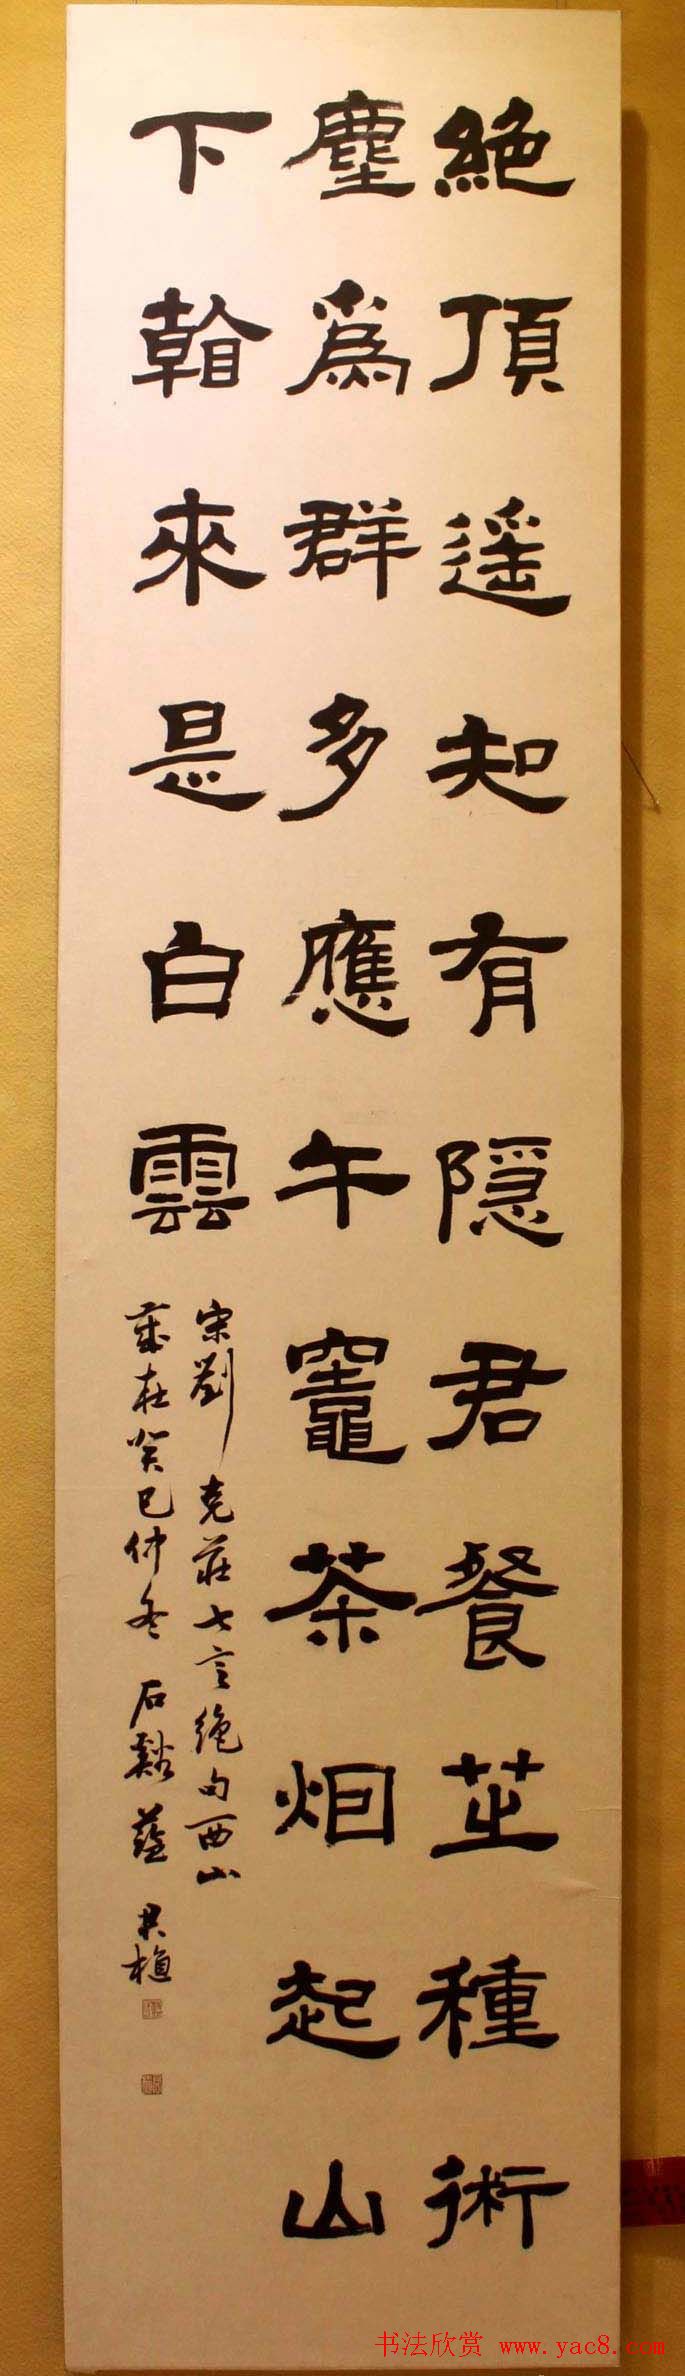 絶頂遥知有隱君餐芝種術
麈爲群多應午竈茶烟起山
下看來是白雲
宋劉克莊七言絶句西山
歲在癸巳仲冬石谿
书法欣赏 www.yac8.com